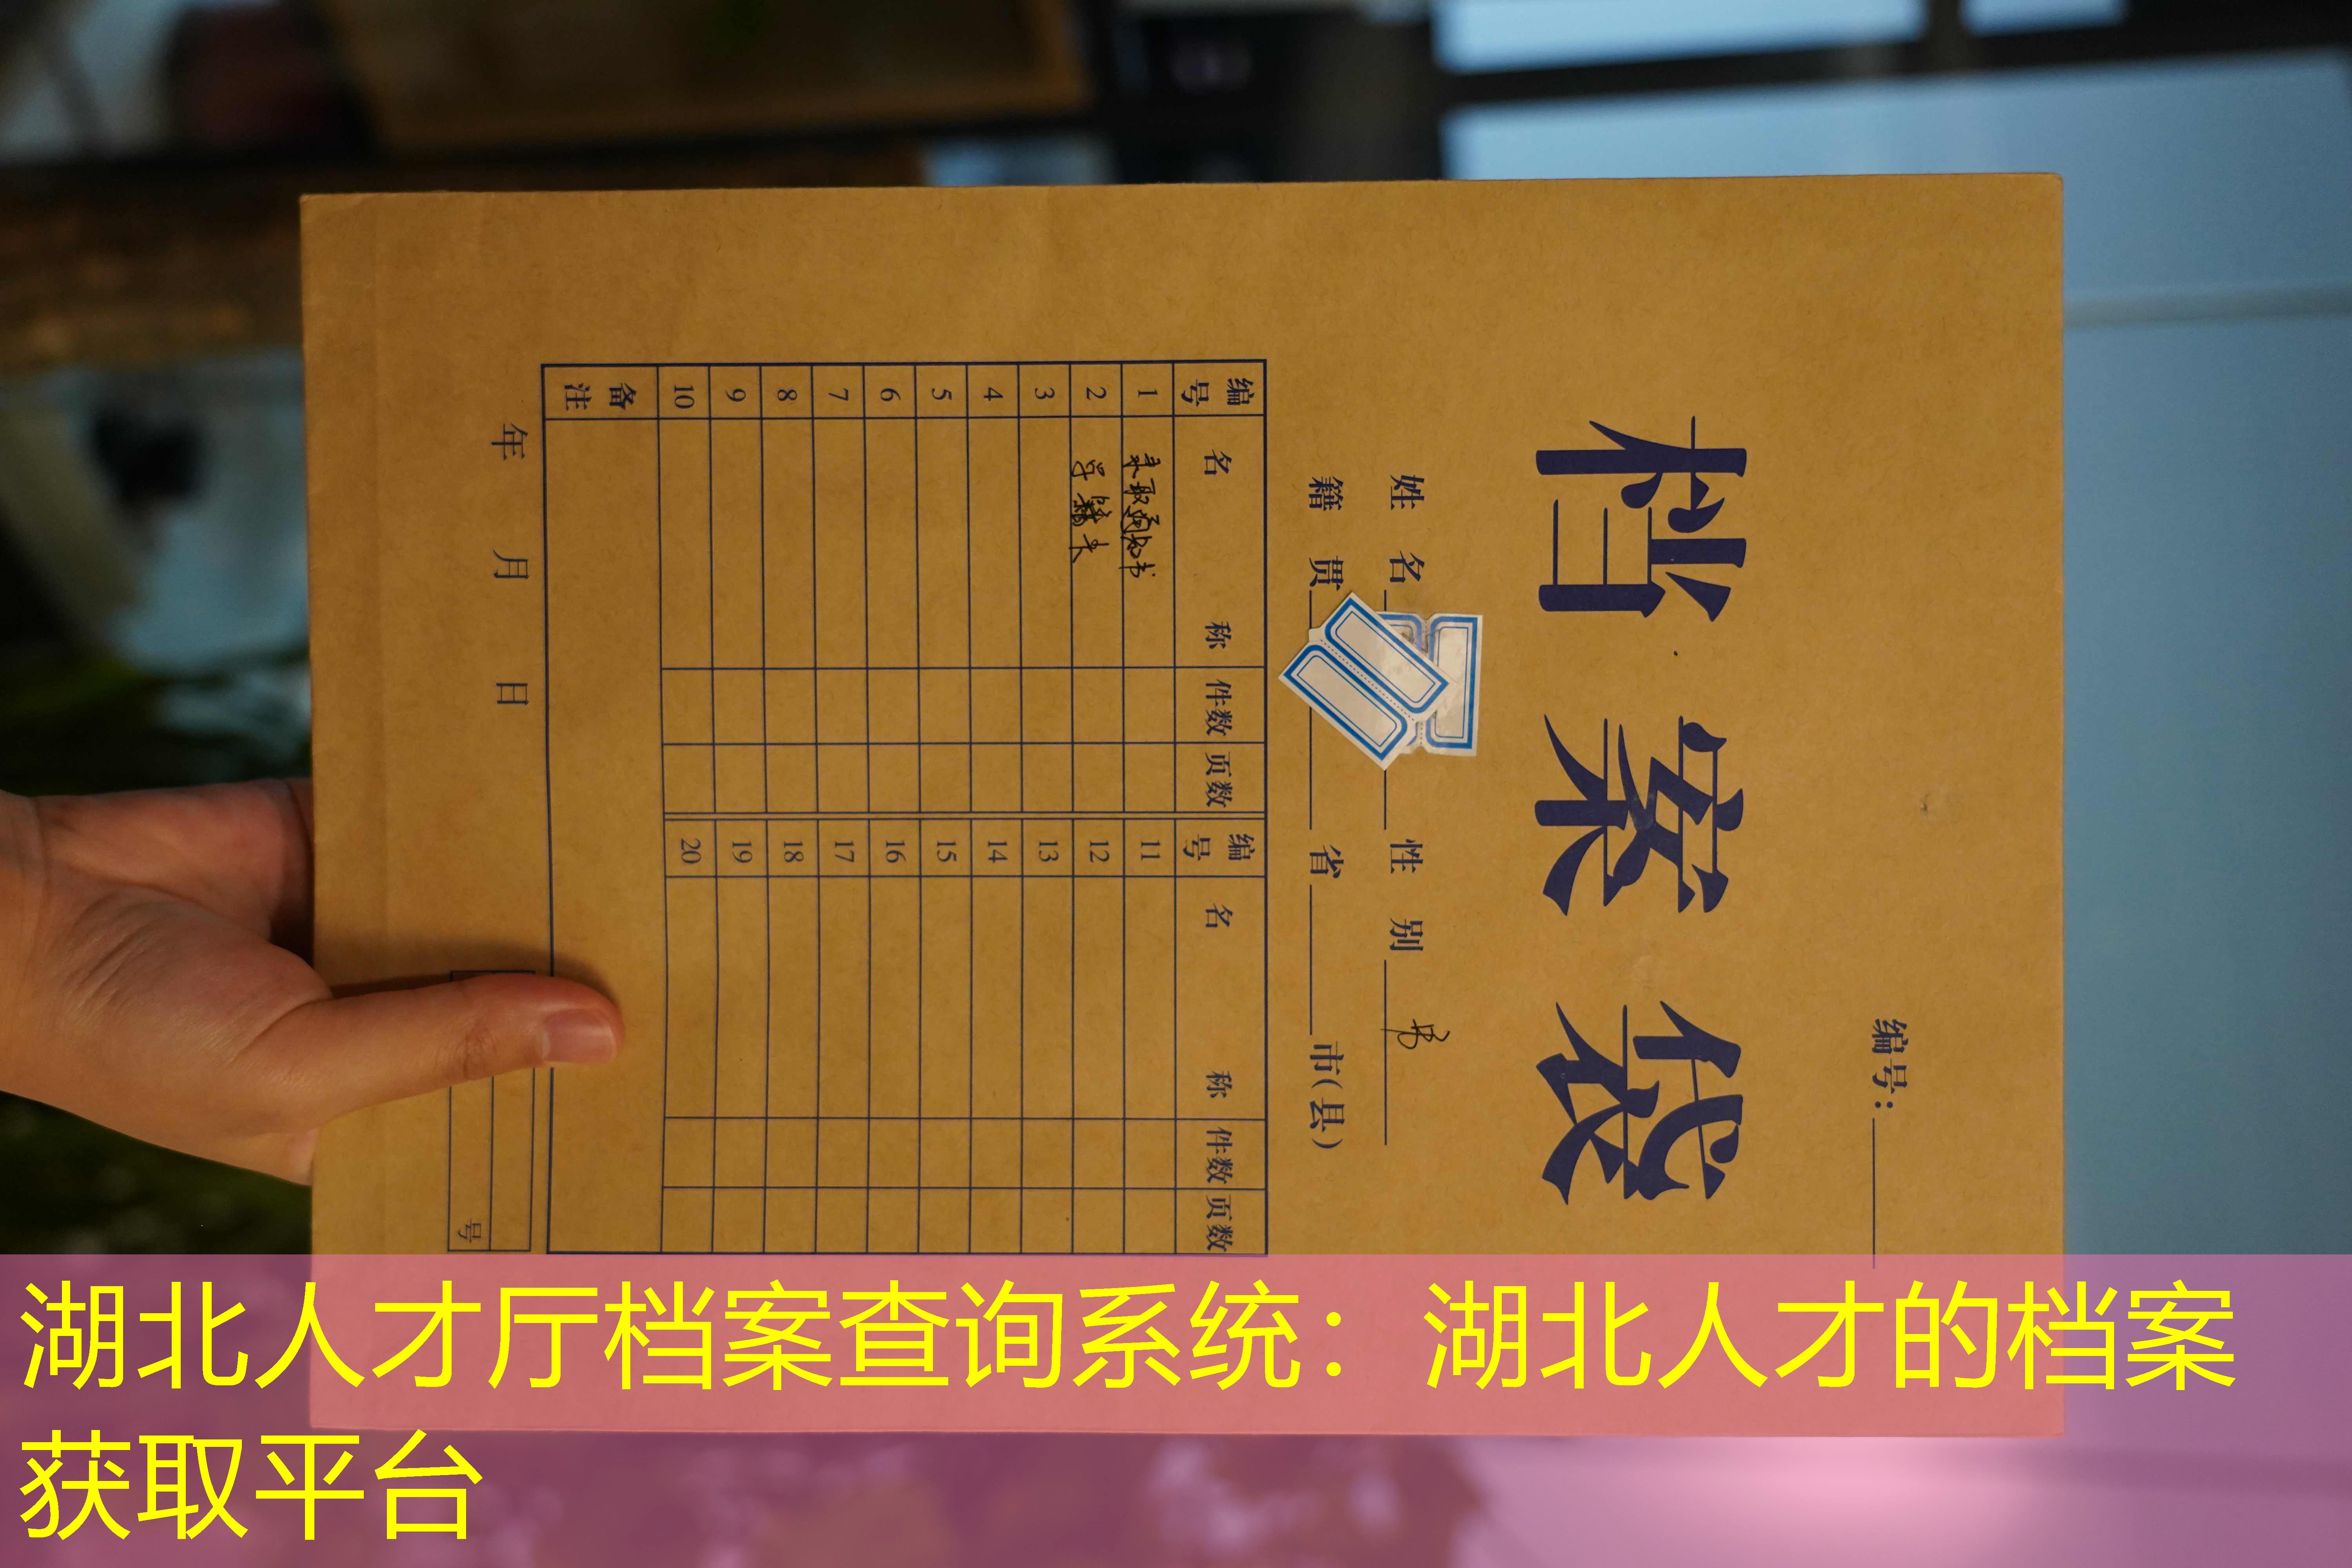 编号：
档案袋
姓名 性别 男
籍贯 省 市(县)
编号 名称 件数 页数 编号 名称 件数 页数
1 录取通知书 11
2 学籍卡 12
3 13
4 14
5 15
6 16
7 17
8 18
9 19
10 20
备注
年 月 日
号
湖北人才厅档案查询系统：湖北人才的档案
获取平台